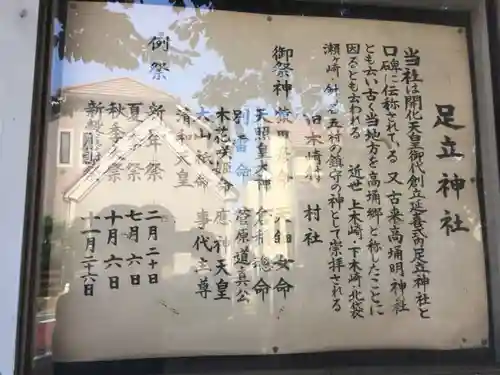 足立神社
当社は開化天皇御代創立延喜式内足立神社と
口碑に伝称されている 又古来高埇明神社
とも云い古く当地方を高埇郷と称したことに
因るとも云われる 近世 上木崎・下木崎・北袋
瀬ヶ崎・針ヶ谷五村の鎮守の神として崇拝される
旧木崎村 村社
御祭神 猿田彦命 天鈿女命
天照皇大神 倉稲魂命
別雷命 菅原道真公
木花咲耶姫命 応神天皇
大山祇命 事代主尊
清和天皇
例祭
新年祭 二月二十日
夏季祭 七月六日
秋季例祭 十月六日
新嘗祭 十一月二十六日